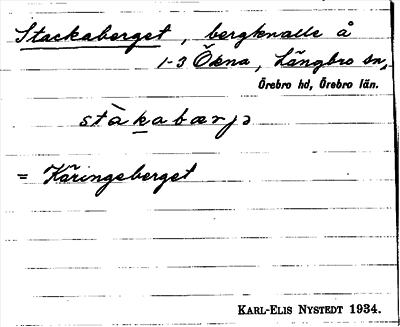 Stackaberget, bergknalle å
1-3 Ökna, Längbro sn,
Örebro hd, Örebro län.
stàkabærjə
= Käringeberget
KARL-ELIS NYSTEDT 1934.